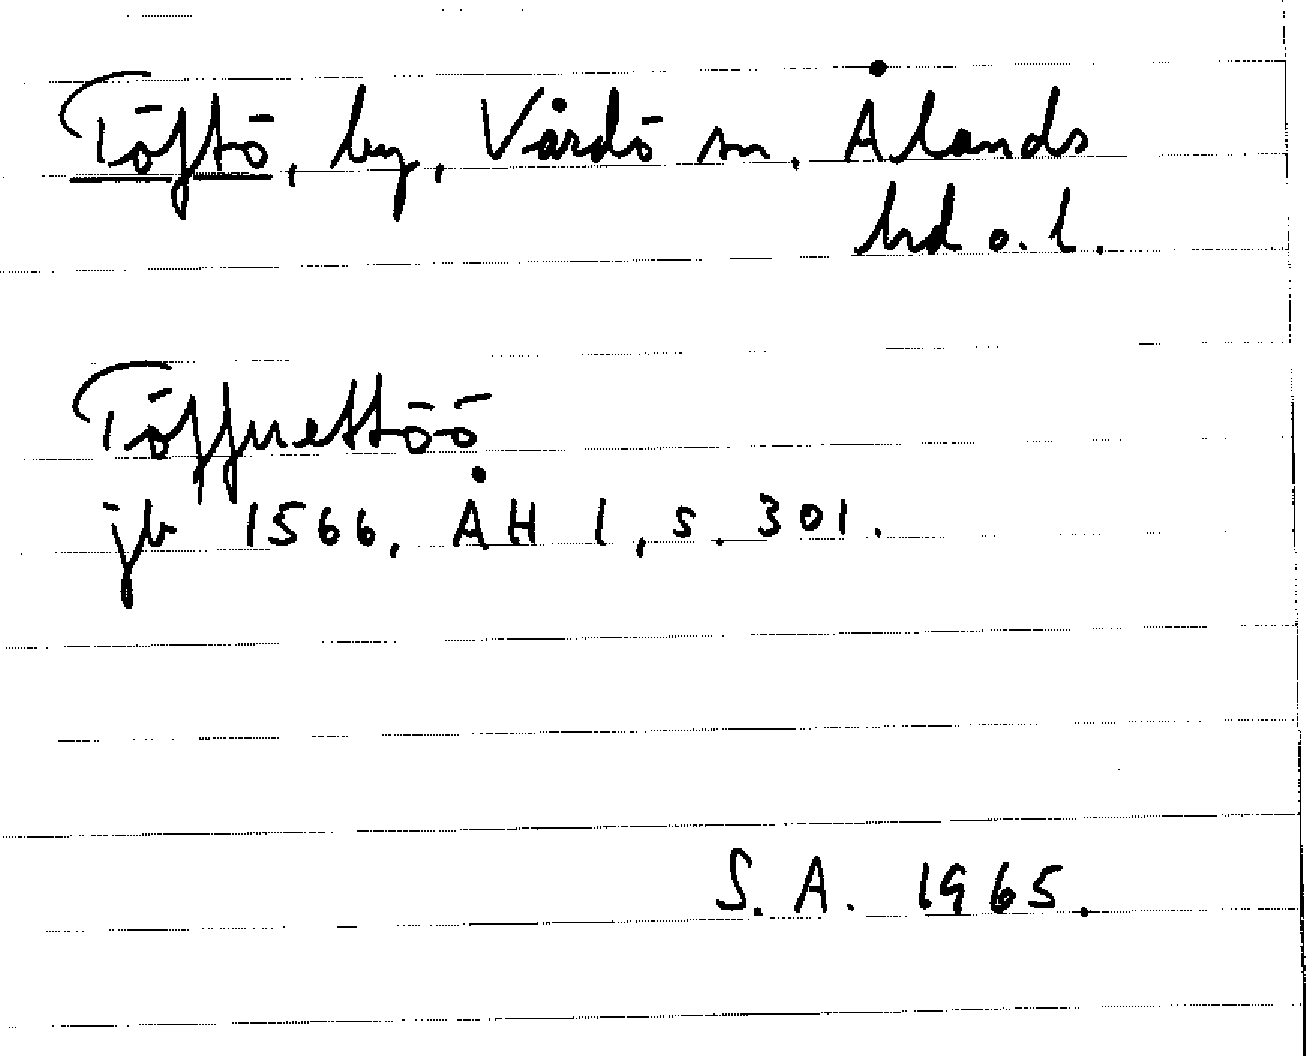 Töftö, by, Vårdö sn. Ålands
hd o. l.
Töffuettöö
jb 1566, ÅH 1, s. 301.
S. A. 1965.